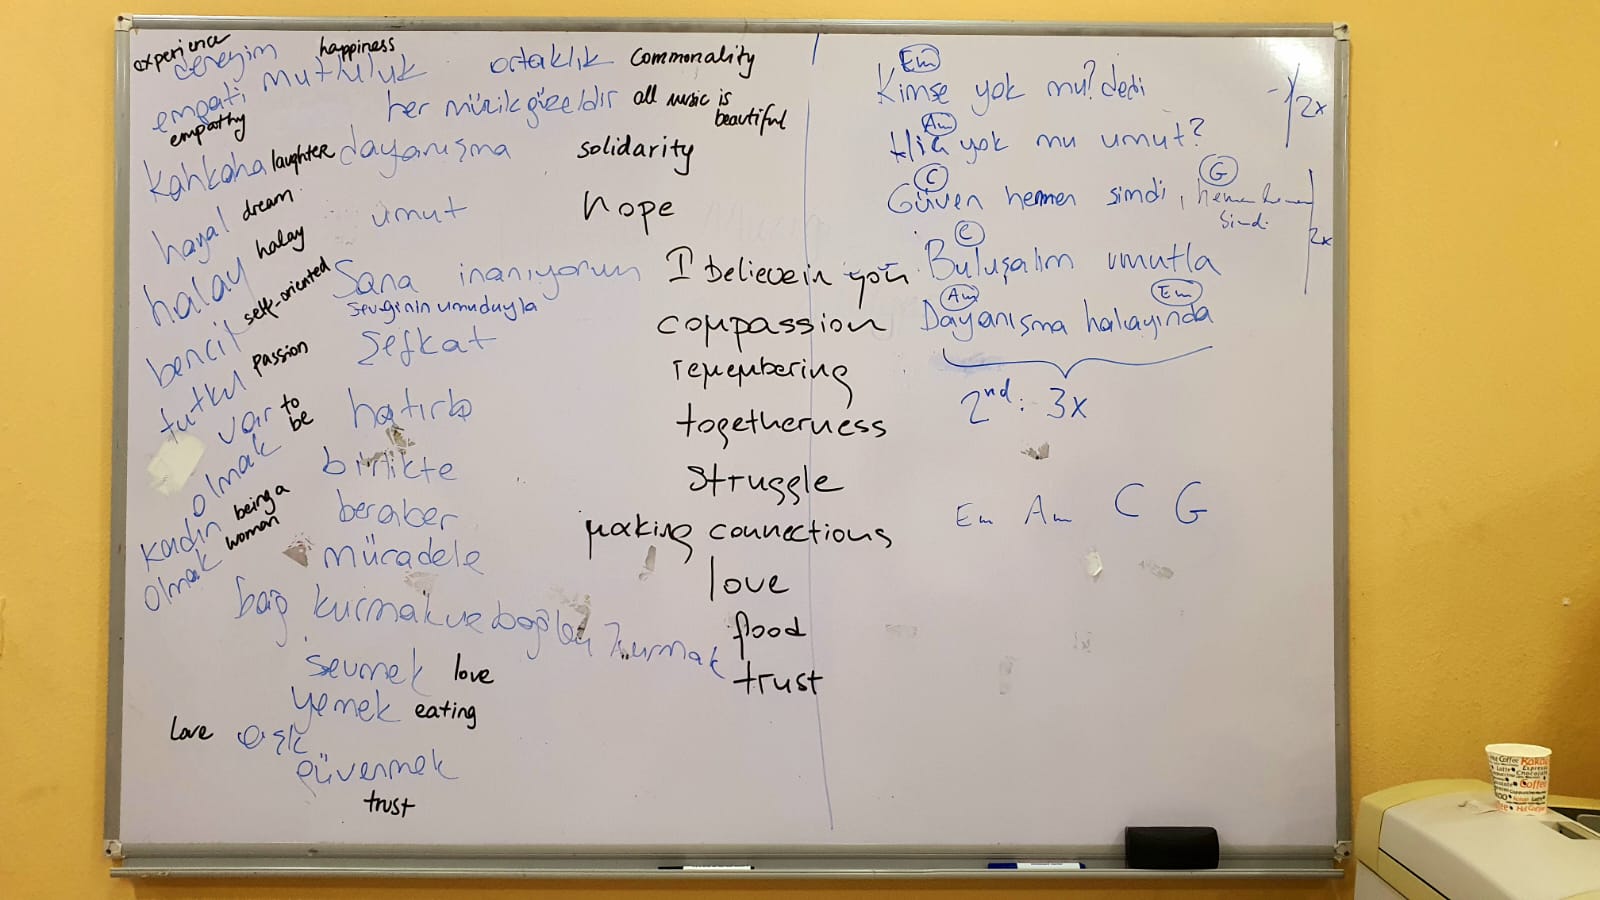 experience
deneyim
happiness
mutluluk
ortaklık commonality
empati
empathy
her müzik güzeldir all music is beautiful
kahkaha laughter
dayanışma solidarity
hayal dream
umut hope
halay halay
Sana inanıyorum I believe in you
sevginin umuduyla
bencil self-oriented
Şefkat compassion
tutku passion
remembering
var olmak to be
hatırla
togetherness
birlikte
struggle
kadın olmak being a woman
beraber
making connections
mücadele
love
bağ kurmak ve bağları kurmak
food
sevmek love
trust
yemek eating
love aşk
güvenmek
trust
Em
Kimse yok mu? dedi
2x
Am
Hiç yok mu umut?
C G
Güven hemen simdi, hemen hemen
simdi
2x
C
Buluşalım umutla
Am Em
Dayanışma halayında
2nd: 3x
Em Am C G